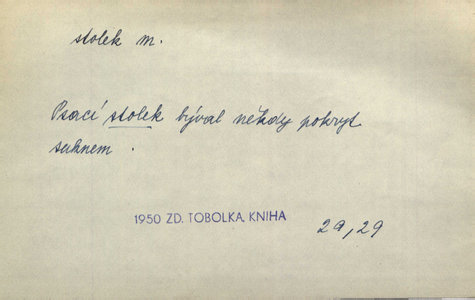 stolek m.
Psací stolek býval někdy pokryt
suknem .
1950 ZD. TOBOLKA, KNIHA
29,29